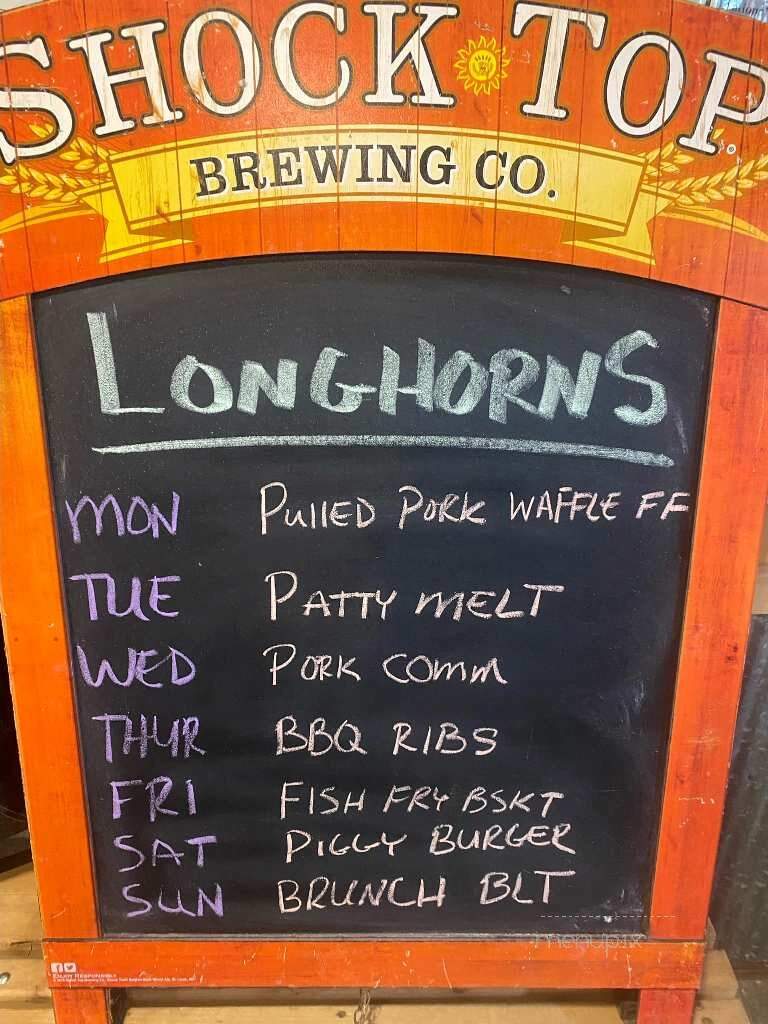 SHOCK TOP
BREWING CO.
LONGHORNS
MON PULLED PORK WAFFLE FF
TUE PATTY MELT
WED PORK COMM
THUR BBQ RIBS
FRI FISH FRY BSKT
SAT PIGGY BURGER
SUN BRUNCH BLT
menupix
ENJOY RESPONSIBLY